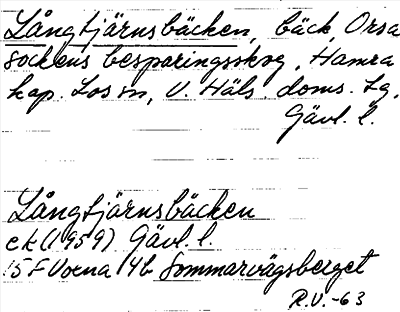 Långtjärnsbäcken, bäck, Orsa
sockens besparingsskog, Hamra
kap. Los sn, V. Häls. doms. sg.
Gävl. l.
Långtjärnsbäcken
ek (1959) Gävl. l.
15 F Voxna 4b Sommarvägsberget
R.V. -63